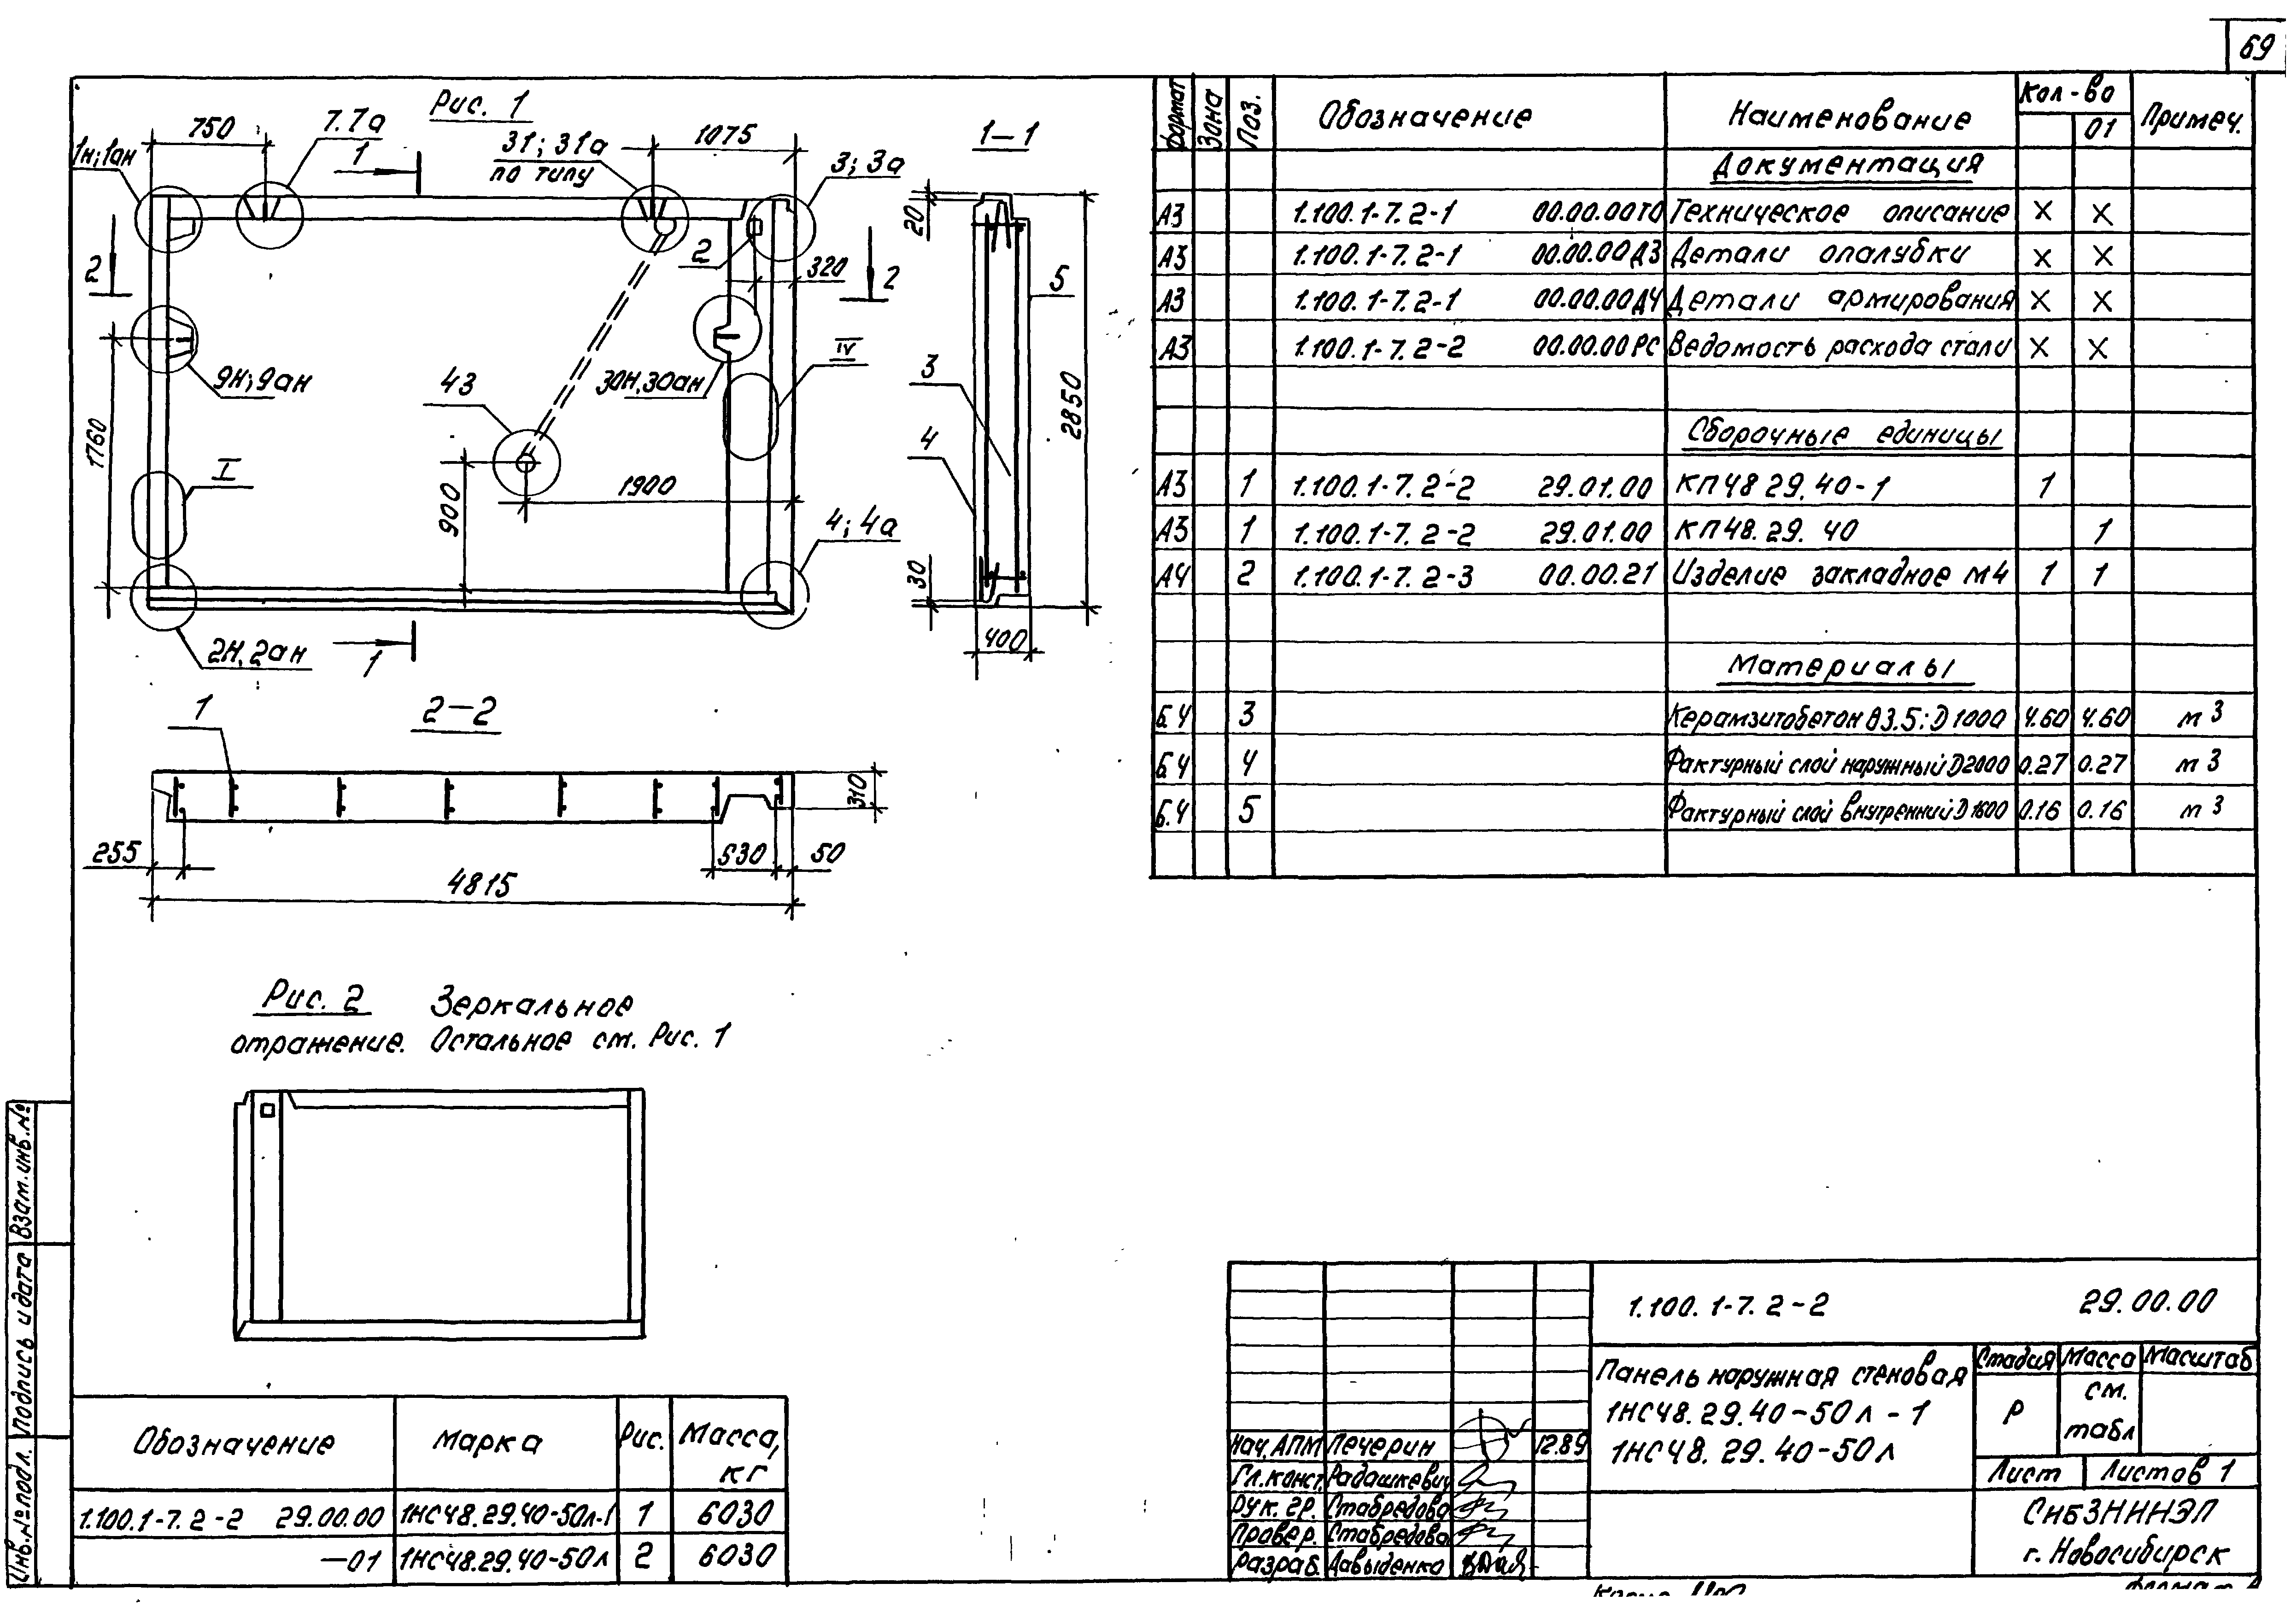 69
Рис. 1
750
7.7а
31; 31а
по типу
1075
1н; 1ан
3; 3а
1
2
2
320
2
9н; 9ан
43
30н, 30ан
IV
1760
I
900
1900
4; 4а
2н, 2ан
1
1-1
20
5
3
2850
4
30
400
1
2-2
310
255
530
50
4815
Рис. 2 Зеркальное
отражение. Остальное см. Рис. 1
Формат Зона Поз. Обозначение Наименование Кол-во Примеч.
01
Документация
А3 1.100.1-7.2-1 00.00.00ТО Техническое описание X X
А3 1.100.1-7.2-1 00.00.00Д3 Детали опалубки X X
А3 1.100.1-7.2-1 00.00.00Д4 Детали армирования X X
А3 1.100.1-7.2-2 00.00.00РС Ведомость расхода стали X X
Сборочные единицы
А3 1 1.100.1-7.2-2 29.01.00 КП48 29.40-1 1
А3 1 1.100.1-7.2-2 29.01.00 КП48.29.40 1
А4 2 1.100.1-7.2-3 00.00.21 Изделие закладное М4 1 1
Материалы
Б.4 3 Керамзитобетон В3.5; D1000 4.60 4.60 м3
Б.4 4 Фактурный слой наружный D2000 0.27 0.27 м3
Б.4 5 Фактурный слой внутренний D1600 0.16 0.16 м3
Обозначение Марка Рис. Масса, кг
1.100.1-7.2-2 29.00.00 1НС48.29.40-50л-1 1 6030
-01 1НС48.29.40-50л 2 6030
Инв.№ подл. Подпись и дата Взам.инв.№
1.100.1-7.2-2 29.00.00
Панель наружная стеновая
1НС48.29.40-50л-1
1НС48.29.40-50л
Стадия Масса Масштаб
Р см. табл
Лист Листов 1
СибЗНИИЭП
г. Новосибирск
Нач.АПМ Печерин 12.89
Гл.конст. Радашкевич
Рук. гр. Стабредова
Провер. Стабредова
Разраб. Давыденко